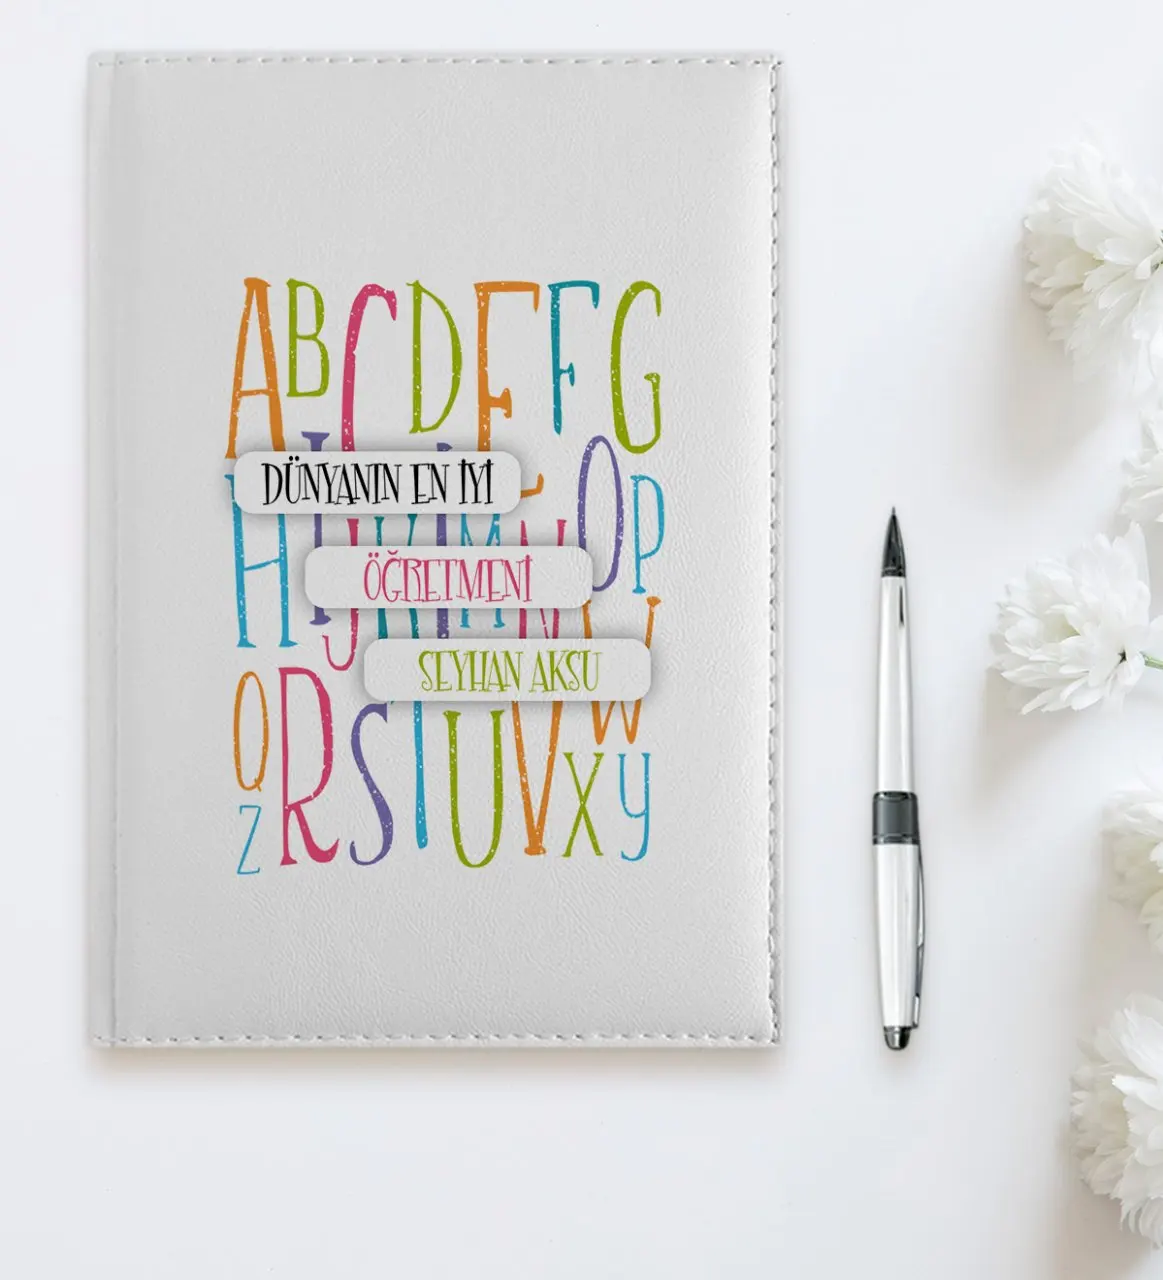 ABCDEFG
DÜNYANIN EN İYİ
HIJKLMNOP
ÖĞRETMENİ
SEYHAN AKSU
QRSTUVWXY
Z